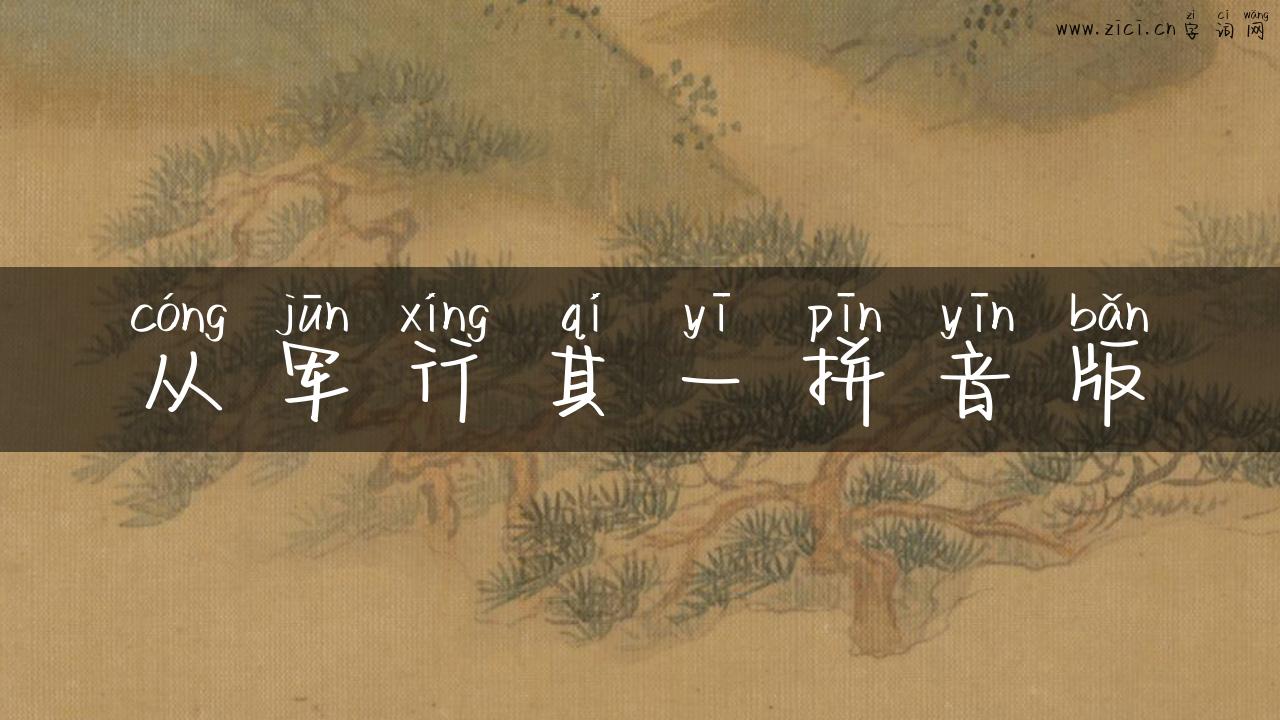 zì cí wǎng
www.zici.cn 字词网
cóng jūn xíng qí yī pīn yīn bǎn
从军行其一拼音版